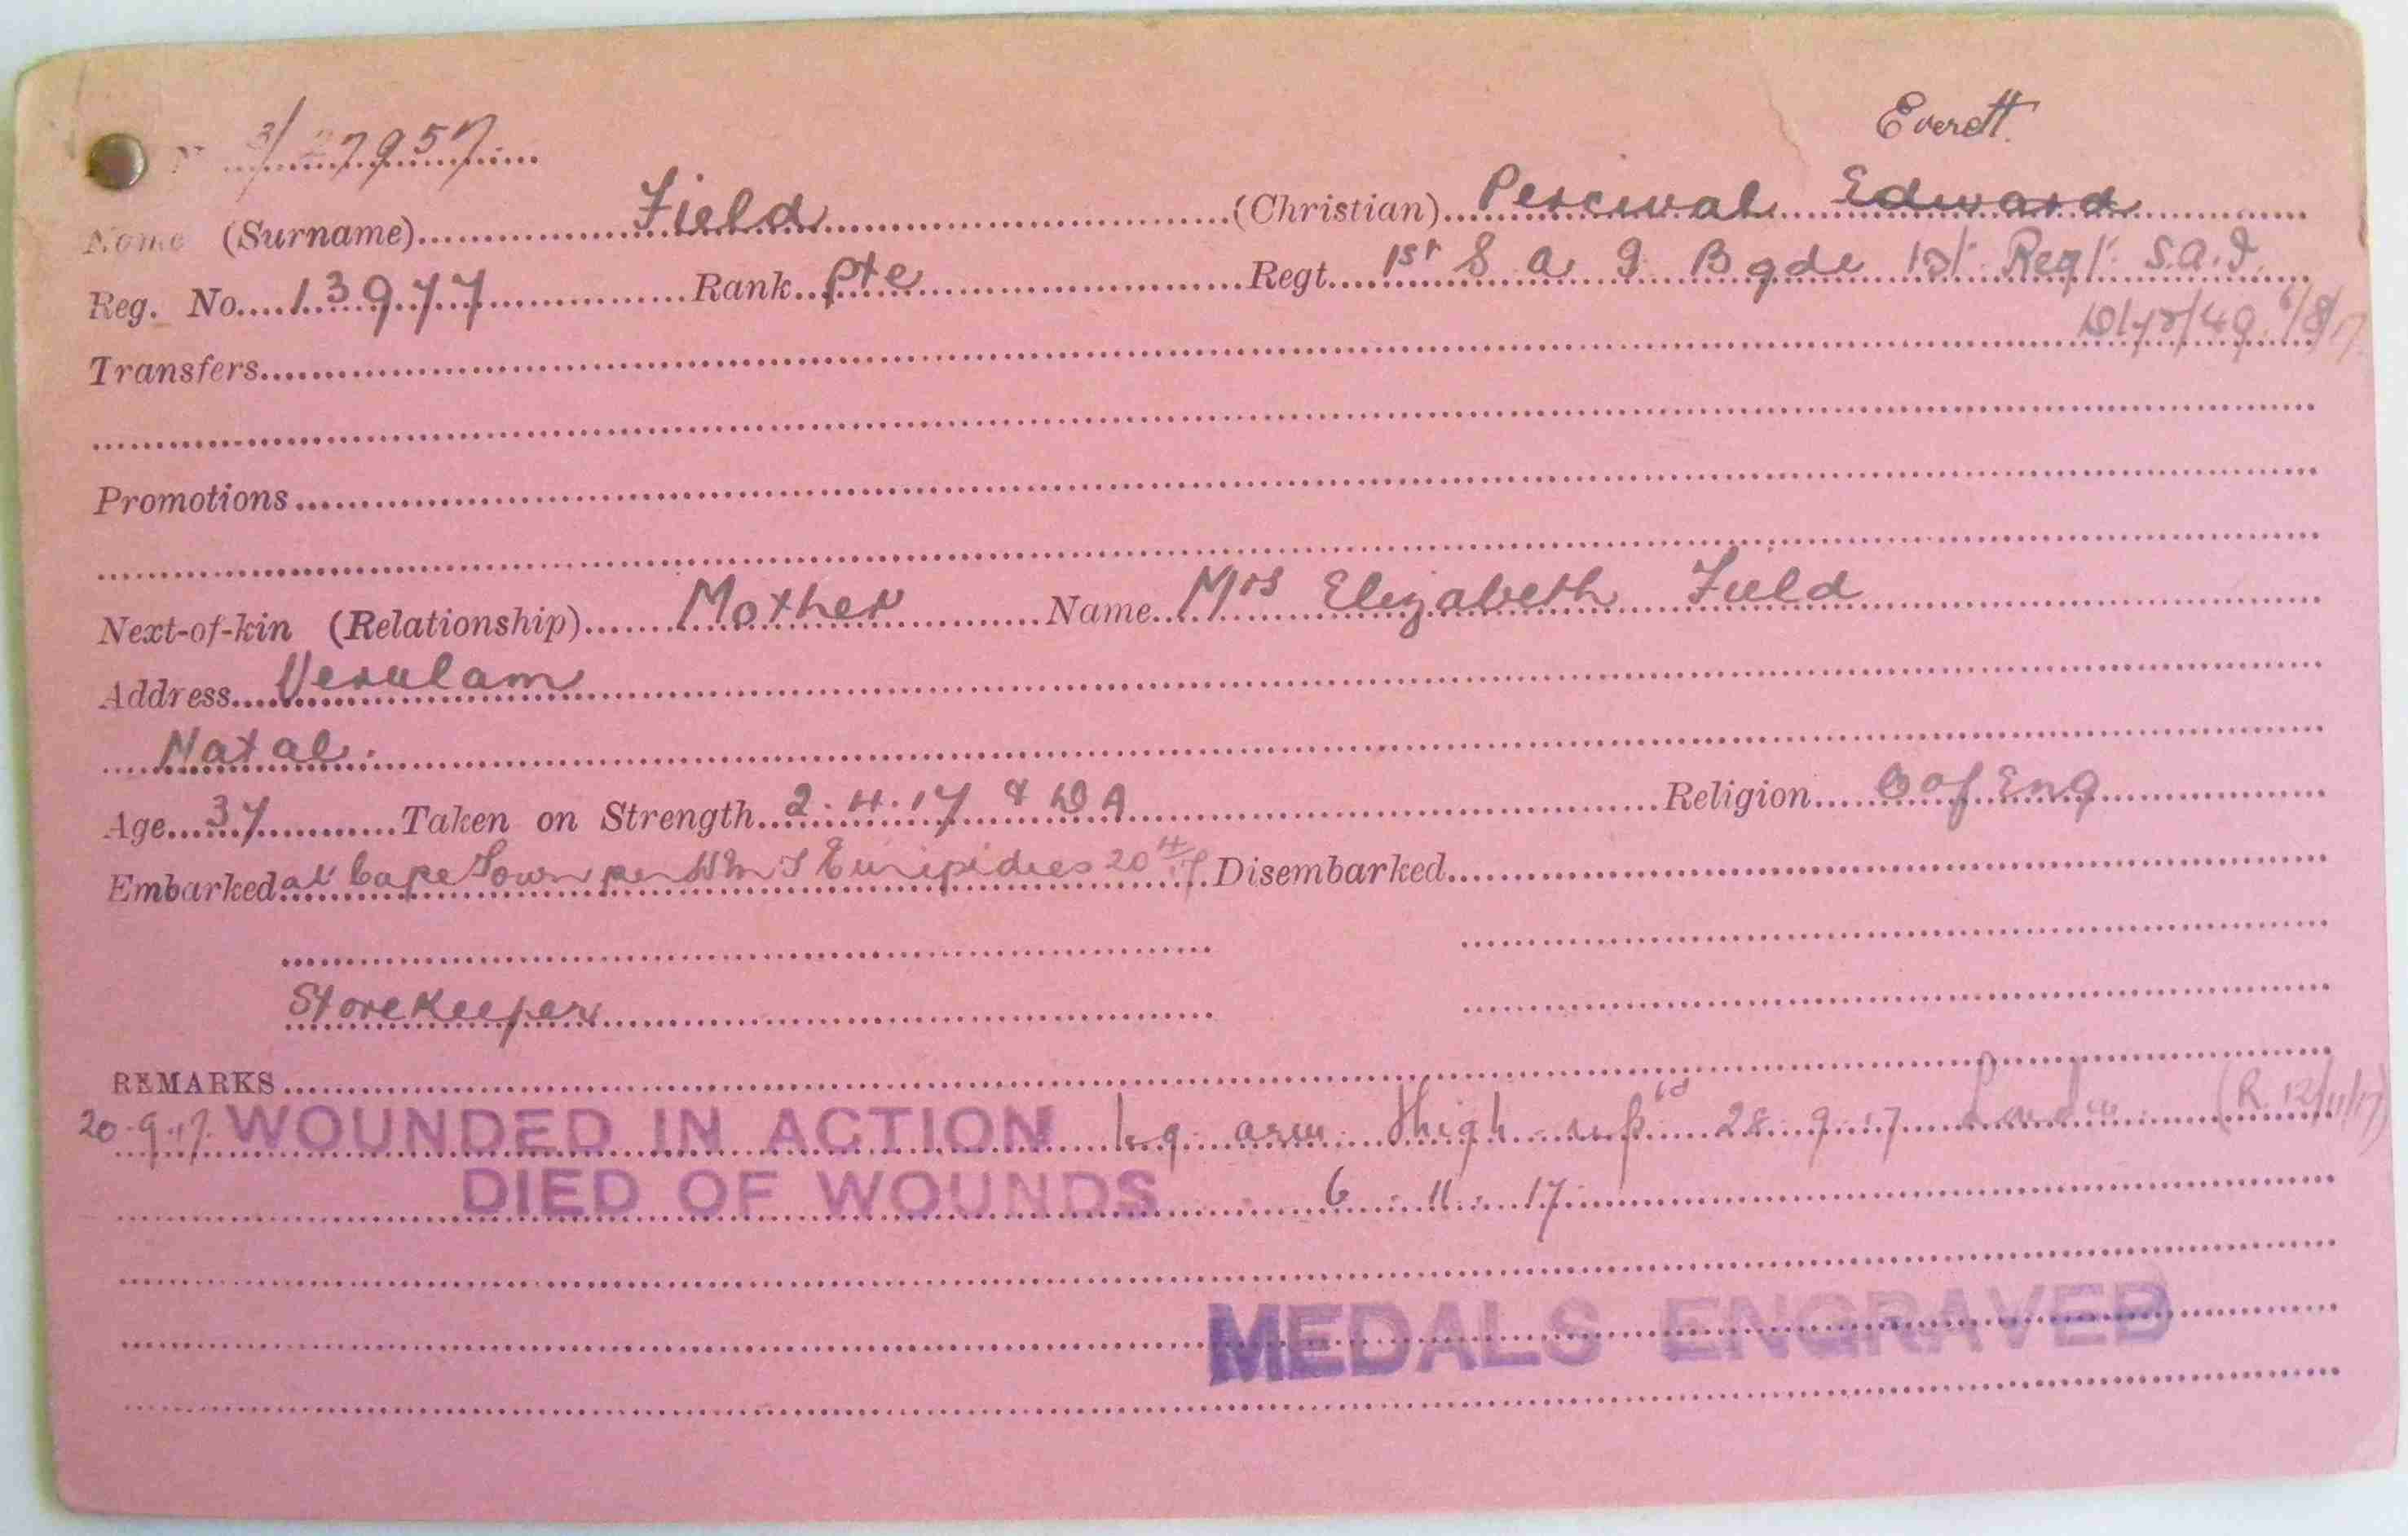 3/27957
Everett
Name (Surname) Field (Christian) Percival Edward
Reg. No. 13977 Rank Pte Regt. 1st S A I Bgde 1st Regt. S.A.I.
6/8/17
Transfers
Promotions
Next-of-kin (Relationship) Mother Name Mrs Elizabeth Field
Address Verulam
Natal.
Age 37 Taken on Strength 2.4.17 Religion C of Eng
Embarked at Cape Town per HMT Euripides 20/4/17 Disembarked
Storekeeper
REMARKS
20.9.17. WOUNDED IN ACTION leg arm thigh 28.9.17 (R. 12/11/17)
DIED OF WOUNDS 6.11.17
MEDALS ENGRAVED